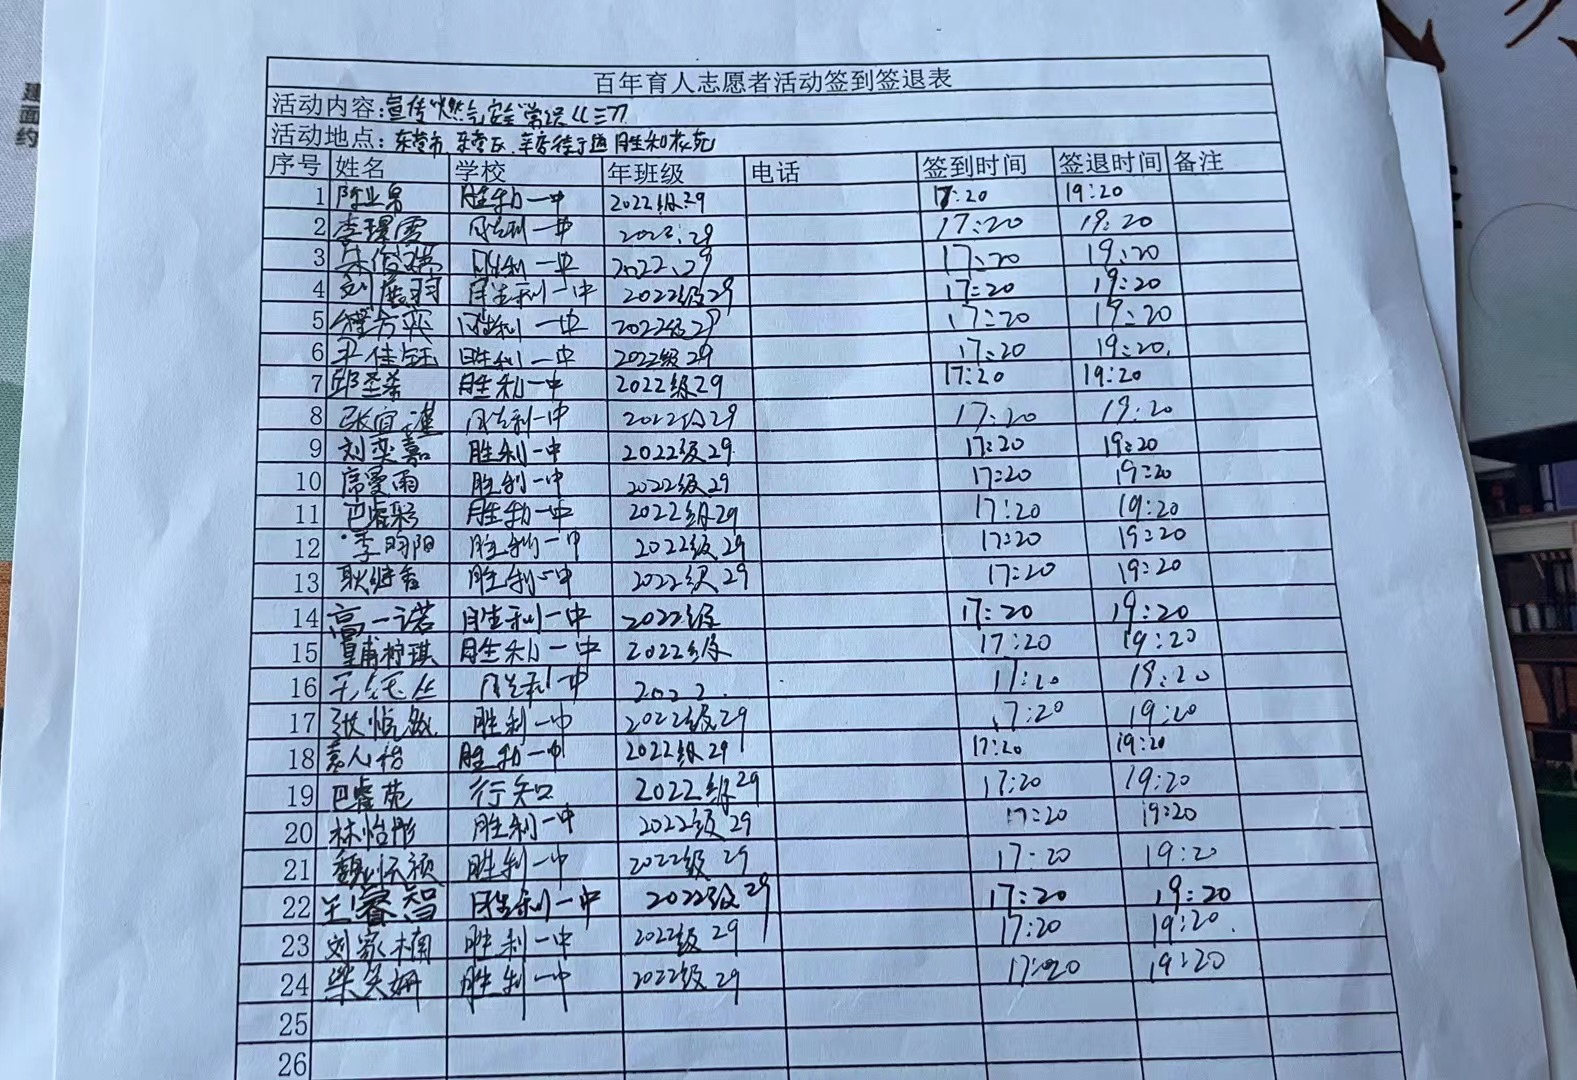 百年育人志愿者活动签到签退表
活动内容:宣传"燃气安全"常识
活动地点:东营市 东营区 胜利花苑
序号 姓名 学校 年班级 电话 签到时间 签退时间 备注
1 胜利一中 2022级29 17:20 19:20
2 李璟雯 胜利一中 2022.29 17:20 19:20
3 胜利一中 2022.29 17:20 19:20
4 刘晨羽 胜利一中 2022级29 17:20 19:20
5 胜利一中 2022级29 17:20 19:20
6 王佳钰 胜利一中 2022级29 17:20 19:20.
7 胜利一中 2022级29 17:20 19:20
8 张宜瑾 胜利一中 2022级29 17:20 19:20
9 刘奕嘉 胜利一中 2022级29 17:20 19:20
10 席曼雨 胜利一中 2022级29 17:20 19:20
11 胜利一中 2022级29 17:20 19:20
12 李昀阳 胜利一中 2022级29 17:20 19:20
13 胜利一中 2022级29 17:20 19:20
14 高一诺 胜利一中 2022级 17:20 19:20
15 皇甫柠琪 胜利一中 2022级 17:20 19:20
16 胜利一中 2022. 17:20 19:20
17 胜利一中 2022级29 17:20 19:20
18 胜利一中 2022级29 17:20 19:20
19 巴睿苑 行知 2022级29 17:20 19:20
20 林怡彤 胜利一中 2022级29 17:20 19:20
21 胜利一中 2022级29 17:20 19:20
22 王睿智 胜利一中 2022级29 17:20 19:20
23 刘家楠 胜利一中 2022级29 17:20 19:20.
24 柴奕姗 胜利一中 2022级29 17:20 19:20
25
26